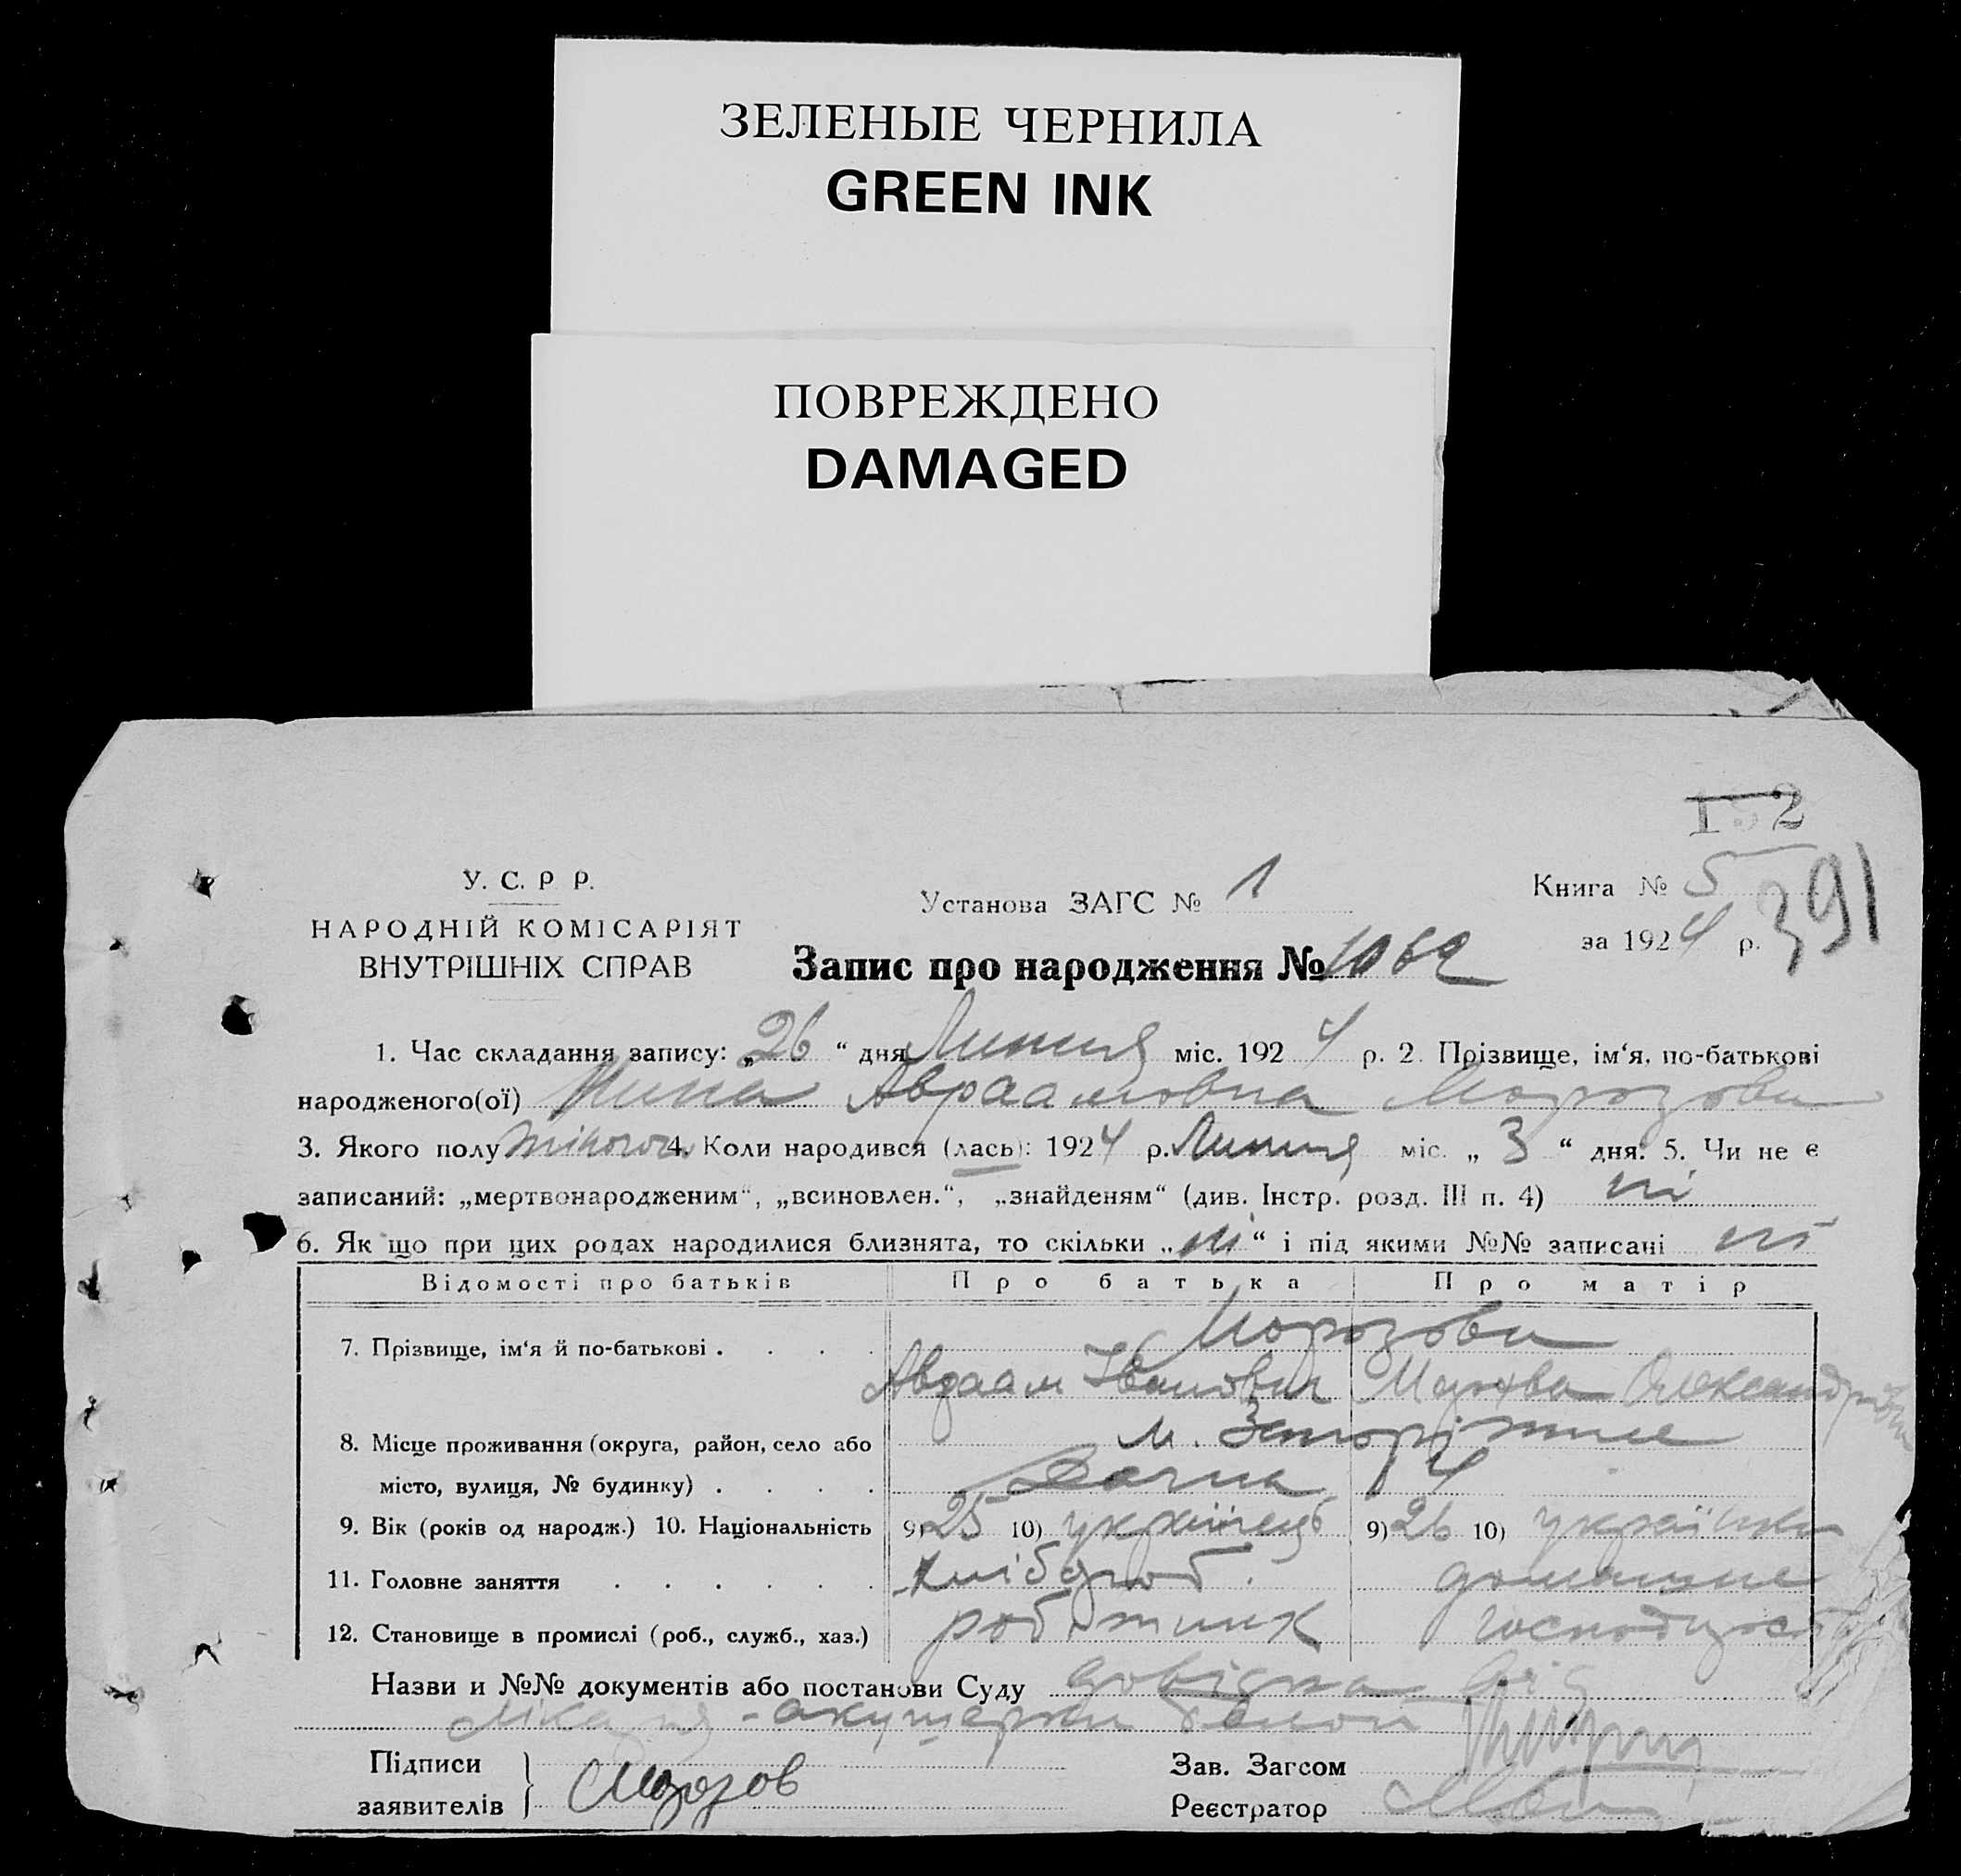 ЗЕЛЕНЫЕ ЧЕРНИЛА
GREEN INK
ПОВРЕЖДЕНО
DAMAGED
152
У. С. Р Р.
Установа ЗАГС № 1
Книга № 5
391
НАРОДНІЙ КОМІСАРІЯТ
за 1924 р.
ВНУТРІШНІХ СПРАВ
Запис про народження № 1062
1. Час складання запису: „26“ дня Липня міс. 1924 р. 2. Прізвище, ім‘я, по-батькові
народженого(ої) Нина Авраамовна Морозова
3. Якого полу жіночого 4. Коли народився (лась): 1924 р. Липня міс. „3“ дня: 5. Чи не є
записаний: „мертвонародженим“, „всиновлен.“, „знайденям“ (див. Інстр. розд. III п. 4) ні
6. Як що при цих родах народилися близнята, то скільки „ні“ і під якими №№ записані ні
Відомості про батьків Про батька Про матір
7. Прізвище, ім‘я й по-батькові . . . . Морозови
Авраам Іванович Марфа Олександровна
8. Місце проживання (округа, район, село або м. Запоріжжє
місто, вулиця, № будинку) . . . . Дачна 4
9. Вік (років од народж.) 10. Національність 9) 25 10) українець 9) 26 10) українка
11. Головне заняття . . . . . . хлібороб. домашне
12. Становище в промислі (роб., служб., хаз.) робітник
Назви и №№ документів або постанови Суду довідка від
акушерки
Підписи
заявителів } Морозов
Зав. Загсом
Реєстратор